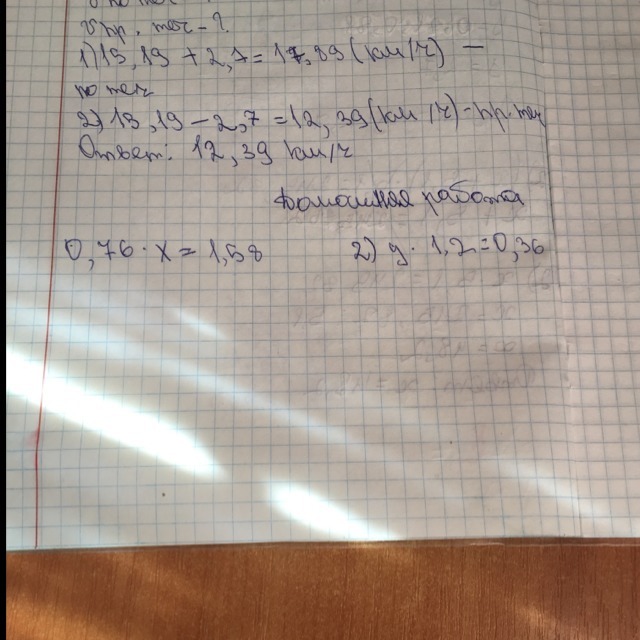 V пр. теч - ?
1) 15,19 + 2,7 = 17,89 (км/ч) —
по теч
2) 15,19 - 2,7 = 12,39 (км/ч) - пр. теч
Ответ: 12,39 км/ч
Домашняя работа
0,76 · x = 1,58 2) y · 1,2 = 0,36